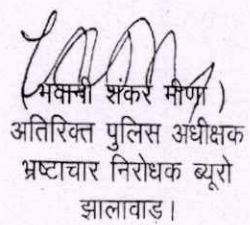 ( भवानी शंकर मीणा )
अतिरिक्त पुलिस अधीक्षक
भ्रष्टाचार निरोधक ब्यूरो
झालावाड़।